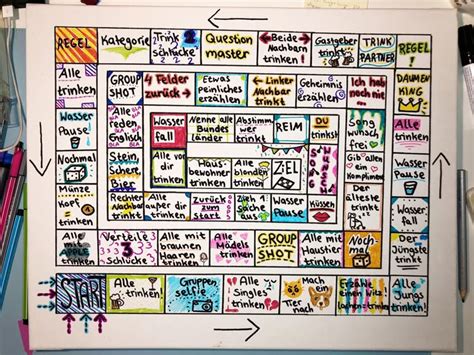 REGEL
Kategorie
Trink 2
schlücke
Question
master
Beide
Nachbarn
trinken
Gastgeber
trinkt
TRINK
PARTNER
REGEL!
Alle
trinken
GROUP
SHOT
4 Felder
zurück
Etwas
peinliches
erzählen
Linker
Nachbar
trinkt
Geheimnis
erzählen
Ich hab
noch nie...
DAUMEN
KING
Wasser
Pause
Alle
reden
Englisch
Wasser
fall
Nenne alle
Bundes
länder
Abstimm
wer
trinkt
REIM
Du
trinkst
Song
wunsch
frei
Alle
trinken!
Nochmal
Stein,
Schere,
Bier
Alle
vor dir
trinken
Haus-
bewohner
trinken
Alle
blonden
trinken
ZIEL
Gib allen
ein
Kompliment
Wasser
Pause
Münze
Kopf
=
trinken
Rechter
Nachbar
trinkt
Alle
außer dir
trinken
Zurück
zum
Start
Wasser
Pause
Küssen
Der
älteste
trinkt
Wasser
fall
Alle
mit
APPLE
trinken
Verteile
3
schlücke
Alle mit
braunen
Haaren
trinken
Alle
Mädels
trinken
GROUP
SHOT
Alle mit
Haustier
trinken
Noch-
mal
Der
Jüngste
trinkt
START
Alle
trinken!
Gruppen
selfie
Alle
Singles
trinken
Mach
ein
Tier
nach
Erzähle
einen Witz!
lachen=trinken
Alle
Jungs
trinken!